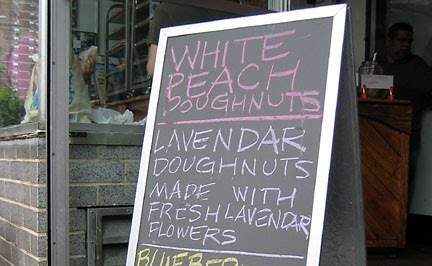 WHITE
PEACH
DOUGHNUTS
LAVENDAR
DOUGHNUTS
MADE WITH
FRESH LAVENDAR
FLOWERS